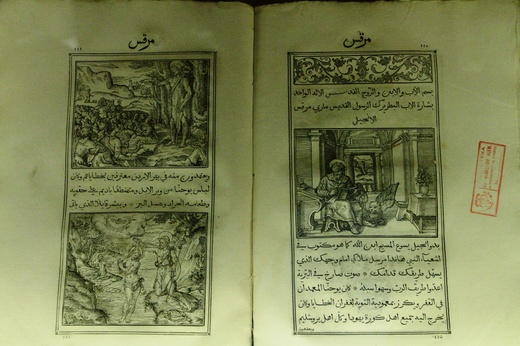 مرقس
بسم الاب والابن والروح القدس الاله الواحد
بشارة الاب البطريرك الرسول القديس ماري مرقس
الانجيل
بدو انجيل يسوع المسيح ابن الله كما هو مكتوب في
اشعيا النبي هانذا مرسل ملاكي امام وجهك الذي
يسهل طريقك قدامك * صوت صارخ في البرية
اعدوا طريق الرب وسهلوا سبله * كان يوحنا المعمدان
في القفر ويكرز بمعمودية التوبة لغفران الخطايا وكان
يخرج اليه جميع اهل كورة يهودا وكل اهل يروشليم
مرقس
منه في نهر الاردن معترفين بخطاياهم وكان
لباس يوحنا من وبر الابل ومتمنطقا باديم على حقويه
وطعامه الجراد وعسل البر * ويبشر قايلا الذي ياتي